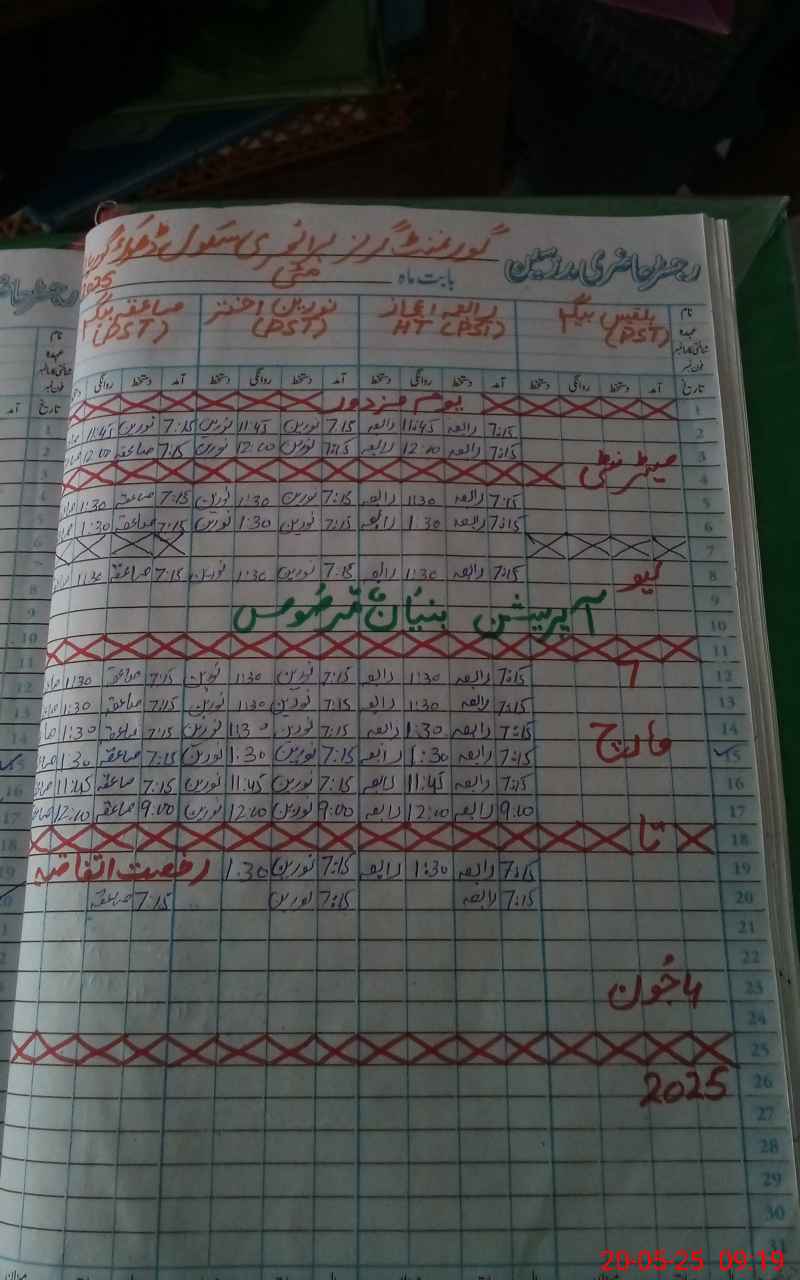 رجسٹر حاضری مدرسین
گورنمنٹ گرلز پرائمری سکول ڈھوک
بابت ماہ مئی 2025
نام بلقیس بیگم رابعہ اعجاز نورین اختر صاعقہ بیگم
عہدہ (PST) HT (PST) (PST) (PST)
تاریخ آمد دستخط روانگی دستخط آمد دستخط روانگی دستخط آمد دستخط روانگی دستخط آمد دستخط روانگی
1 یوم مزدور
2 7:15 رابعہ 11:45 رابعہ 7:15 نورین 11:45 نورین 7:15 نورین 11:45
3 7:15 رابعہ 12:00 رابعہ 7:15 نورین 12:00 نورین 7:15 صاعقہ 12:00
میٹرنٹی
4
5 7:15 رابعہ 1:30 رابعہ 7:15 نورین 1:30 نورین 7:15 صاعقہ 1:30
6 7:15 رابعہ 1:30 رابعہ 7:15 نورین 1:30 نورین 7:15 صاعقہ 1:30
7
8 لیو 7:15 رابعہ 1:30 رابعہ 7:15 نورین 1:30 نورین 7:15 صاعقہ 1:30
9
10 آپریشن بنیان مرصوص
11
12 7:15 رابعہ 1:30 رابعہ 7:15 نورین 1:30 نورین 7:15 صاعقہ 1:30
13 7:15 رابعہ 1:30 رابعہ 7:15 نورین 1:30 نورین 7:15 صاعقہ 1:30
14 مارچ 7:15 رابعہ 1:30 رابعہ 7:15 نورین 1:30 نورین 7:15 صاعقہ 1:30
15 7:15 رابعہ 1:30 رابعہ 7:15 نورین 1:30 نورین 7:15 صاعقہ 1:30
16 7:15 رابعہ 11:45 رابعہ 7:15 نورین 11:45 نورین 7:15 صاعقہ 11:45
17 9:00 رابعہ 12:00 رابعہ 9:00 نورین 12:00 نورین 9:00 صاعقہ 12:00
18 تا
19 7:15 رابعہ 1:30 رابعہ 7:15 نورین 1:30 رخصت اتفاقیہ
20 7:15 رابعہ 7:15 نورین 7:15 صاعقہ
21
22
23 جون
24
25
26 2025
27
28
29
30
31
20-05-25 09:19